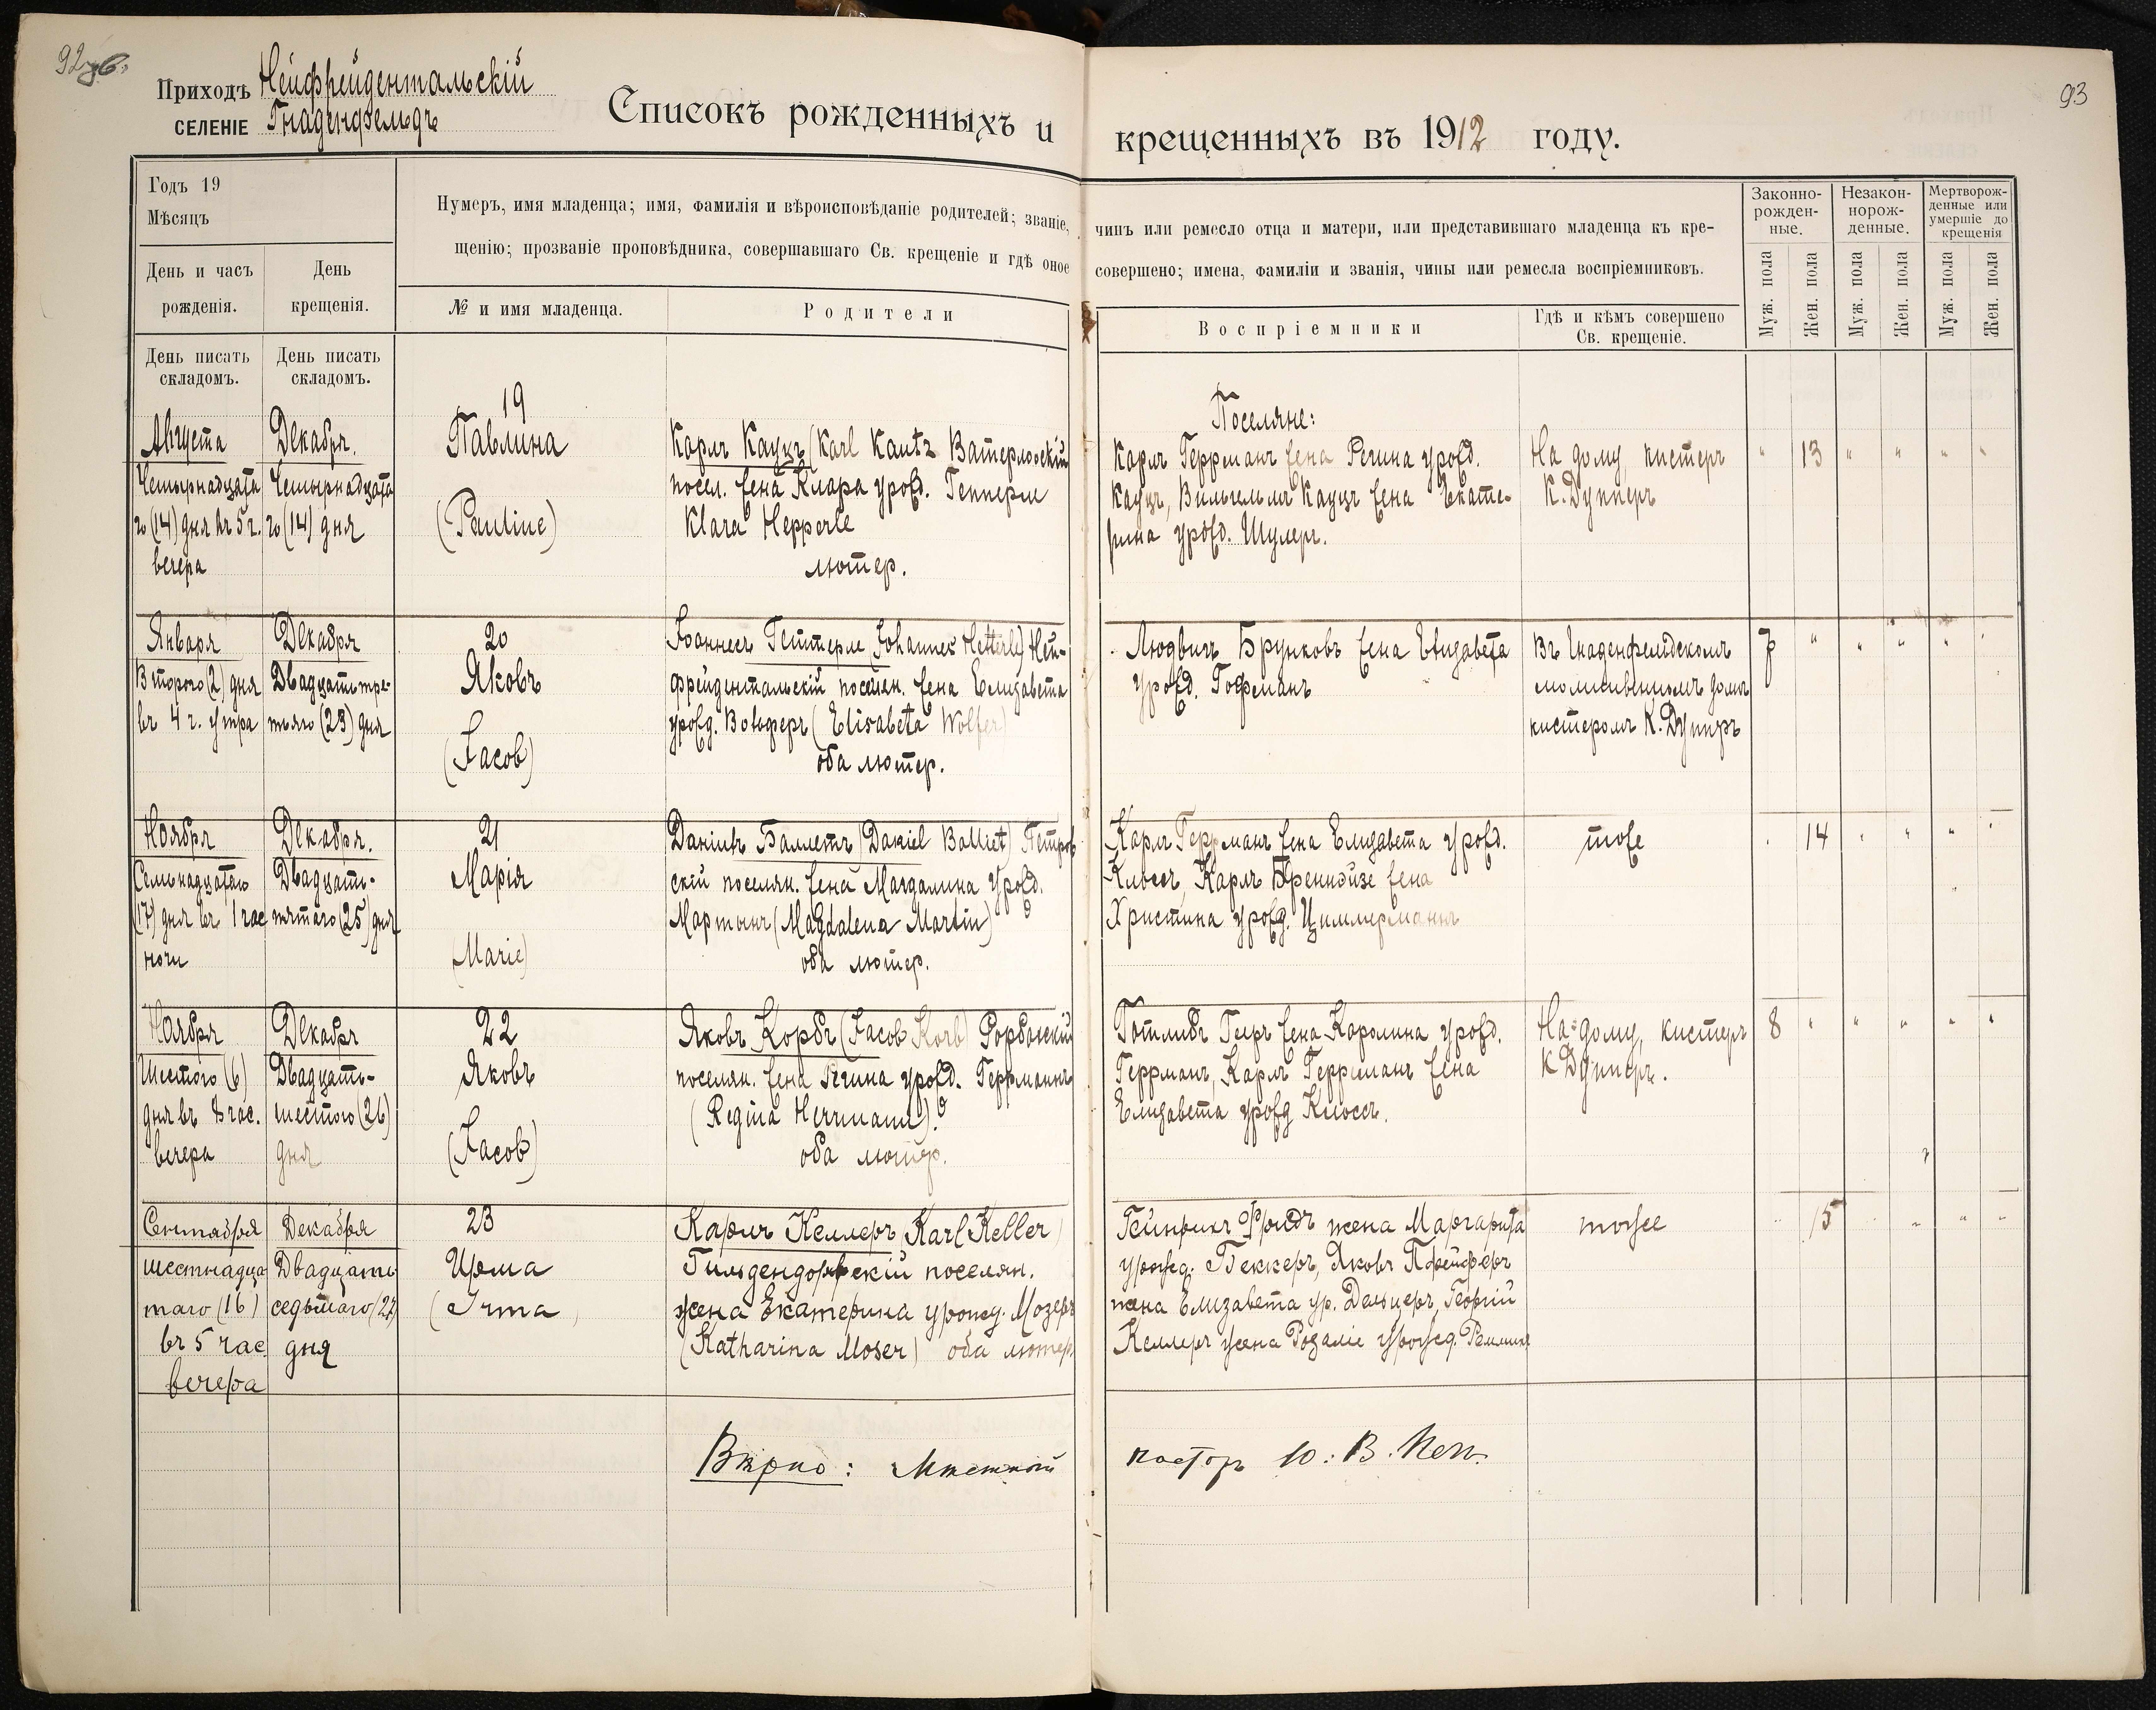 92 об.
93
Приходъ Нейфрейдентальскій
селеніе Гнаденфельдъ
Списокъ рожденныхъ и крещенныхъ въ 1912 году.
Годъ 19
Мѣсяцъ
День и часъ рожденія.
День крещенія.
Нумеръ, имя младенца; имя, фамилія и вѣроисповѣданіе родителей; званіе, чинъ или ремесло отца и матери, или представившаго младенца къ кре-
щенію; прозваніе проповѣдника, совершавшаго Св. крещеніе и гдѣ оное совершено; имена, фамиліи и званія, чины или ремесла воспріемниковъ.
№ и имя младенца.
Родители
Воспріемники
Гдѣ и кѣмъ совершено Св. крещеніе.
Законно-рожден-ные.
Незакон-норож-денные.
Мертворож-денные или умершіе до крещенія
Муж. пола
Жен. пола
Муж. пола
Жен. пола
Муж. пола
Жен. пола
День писать складомъ.
День писать складомъ.
Августа
Четырнадцата
го (14) дня въ 5 ч.
вечера
Декабря.
Четырнадцата
го (14) дня
19
Павлина
(Pauline)
Карлъ Кауцъ (Karl Kautz Ватерлоскій
посел. жена Клара урожд. Гепперле
Klara Hepperle
лютер.
Поселяне:
Карлъ Геррманъ жена Регина урожд.
Кауцъ, Вильгельмъ Кауцъ жена Екате-
рина урожд. Шулеръ.
На дому, кистеръ
К. Дупперъ
13
Января
Второго (2) дня
въ 4 ч. утра
Декабря
Двадцатьтре-
тьяго (23) дня
20
Яковъ
(Jacob)
Іоаннесъ Геттерле (Johannes Hetterle) Ней-
фрейдентальскій поселян. жена Елизавета
урожд. Вольферъ (Elisabeta Wolfer)
оба лютер.
Людвигъ Брунковъ жена Елизавета
урожд. Гофманъ
Въ Гнаденфельдскомъ
молитвенномъ домѣ
кистеромъ К. Дуппръ
7
Ноября
Семьнадцатаго
(17) дня въ 1 час
ночи
Декабря.
Двадцать-
пятаго (25) дня
21
Марія
(Marie)
Даніилъ Баллетъ (Daniel Balliet) Петров
скій поселян. жена Магдалина урожд.
Мартынъ (Magdalena Martin)
оба лютер.
Карлъ Геррманъ жена Елизавета урожд.
Клоссъ, Карлъ Бреннэйзе жена
Христина урожд. Циммерманъ
тоже
14
Ноября
Шестого (6)
дня въ 8 час.
вечера
Декабря
Двадцать-
шестого (26)
дня
22
Яковъ
(Jacob)
Яковъ Корбъ (Jacob Korb) Рорбахскій
поселян. жена Регина урожд. Геррманнъ
(Regina Herrmann).
оба лютер.
Готлибъ Гейръ жена Каролина урожд.
Геррманъ, Карлъ Геррманъ жена
Елизавета урожд Клоссъ.
На дому, кистеръ
К Дупперъ.
8
Сентября
шестнадца
таго (16)
въ 5 час
вечера
Декабря
Двадцать
седьмаго (27)
дня
23
Ирма
(Irma)
Карлъ Келлеръ (Karl Keller)
Гильдендорфскій поселян.
жена Екатерина урожд. Мозеръ
(Katharina Moser) оба лютер.
Гейнрихъ Фридъ жена Маргарита
урожд. Беккеръ, Яковъ Пфейферъ
жена Елизавета ур. Дельцеръ, Георгій
Келлеръ жена Розаліе урожд.
тоже
15
Вѣрно: Мѣстный пасторъ Ю. В.